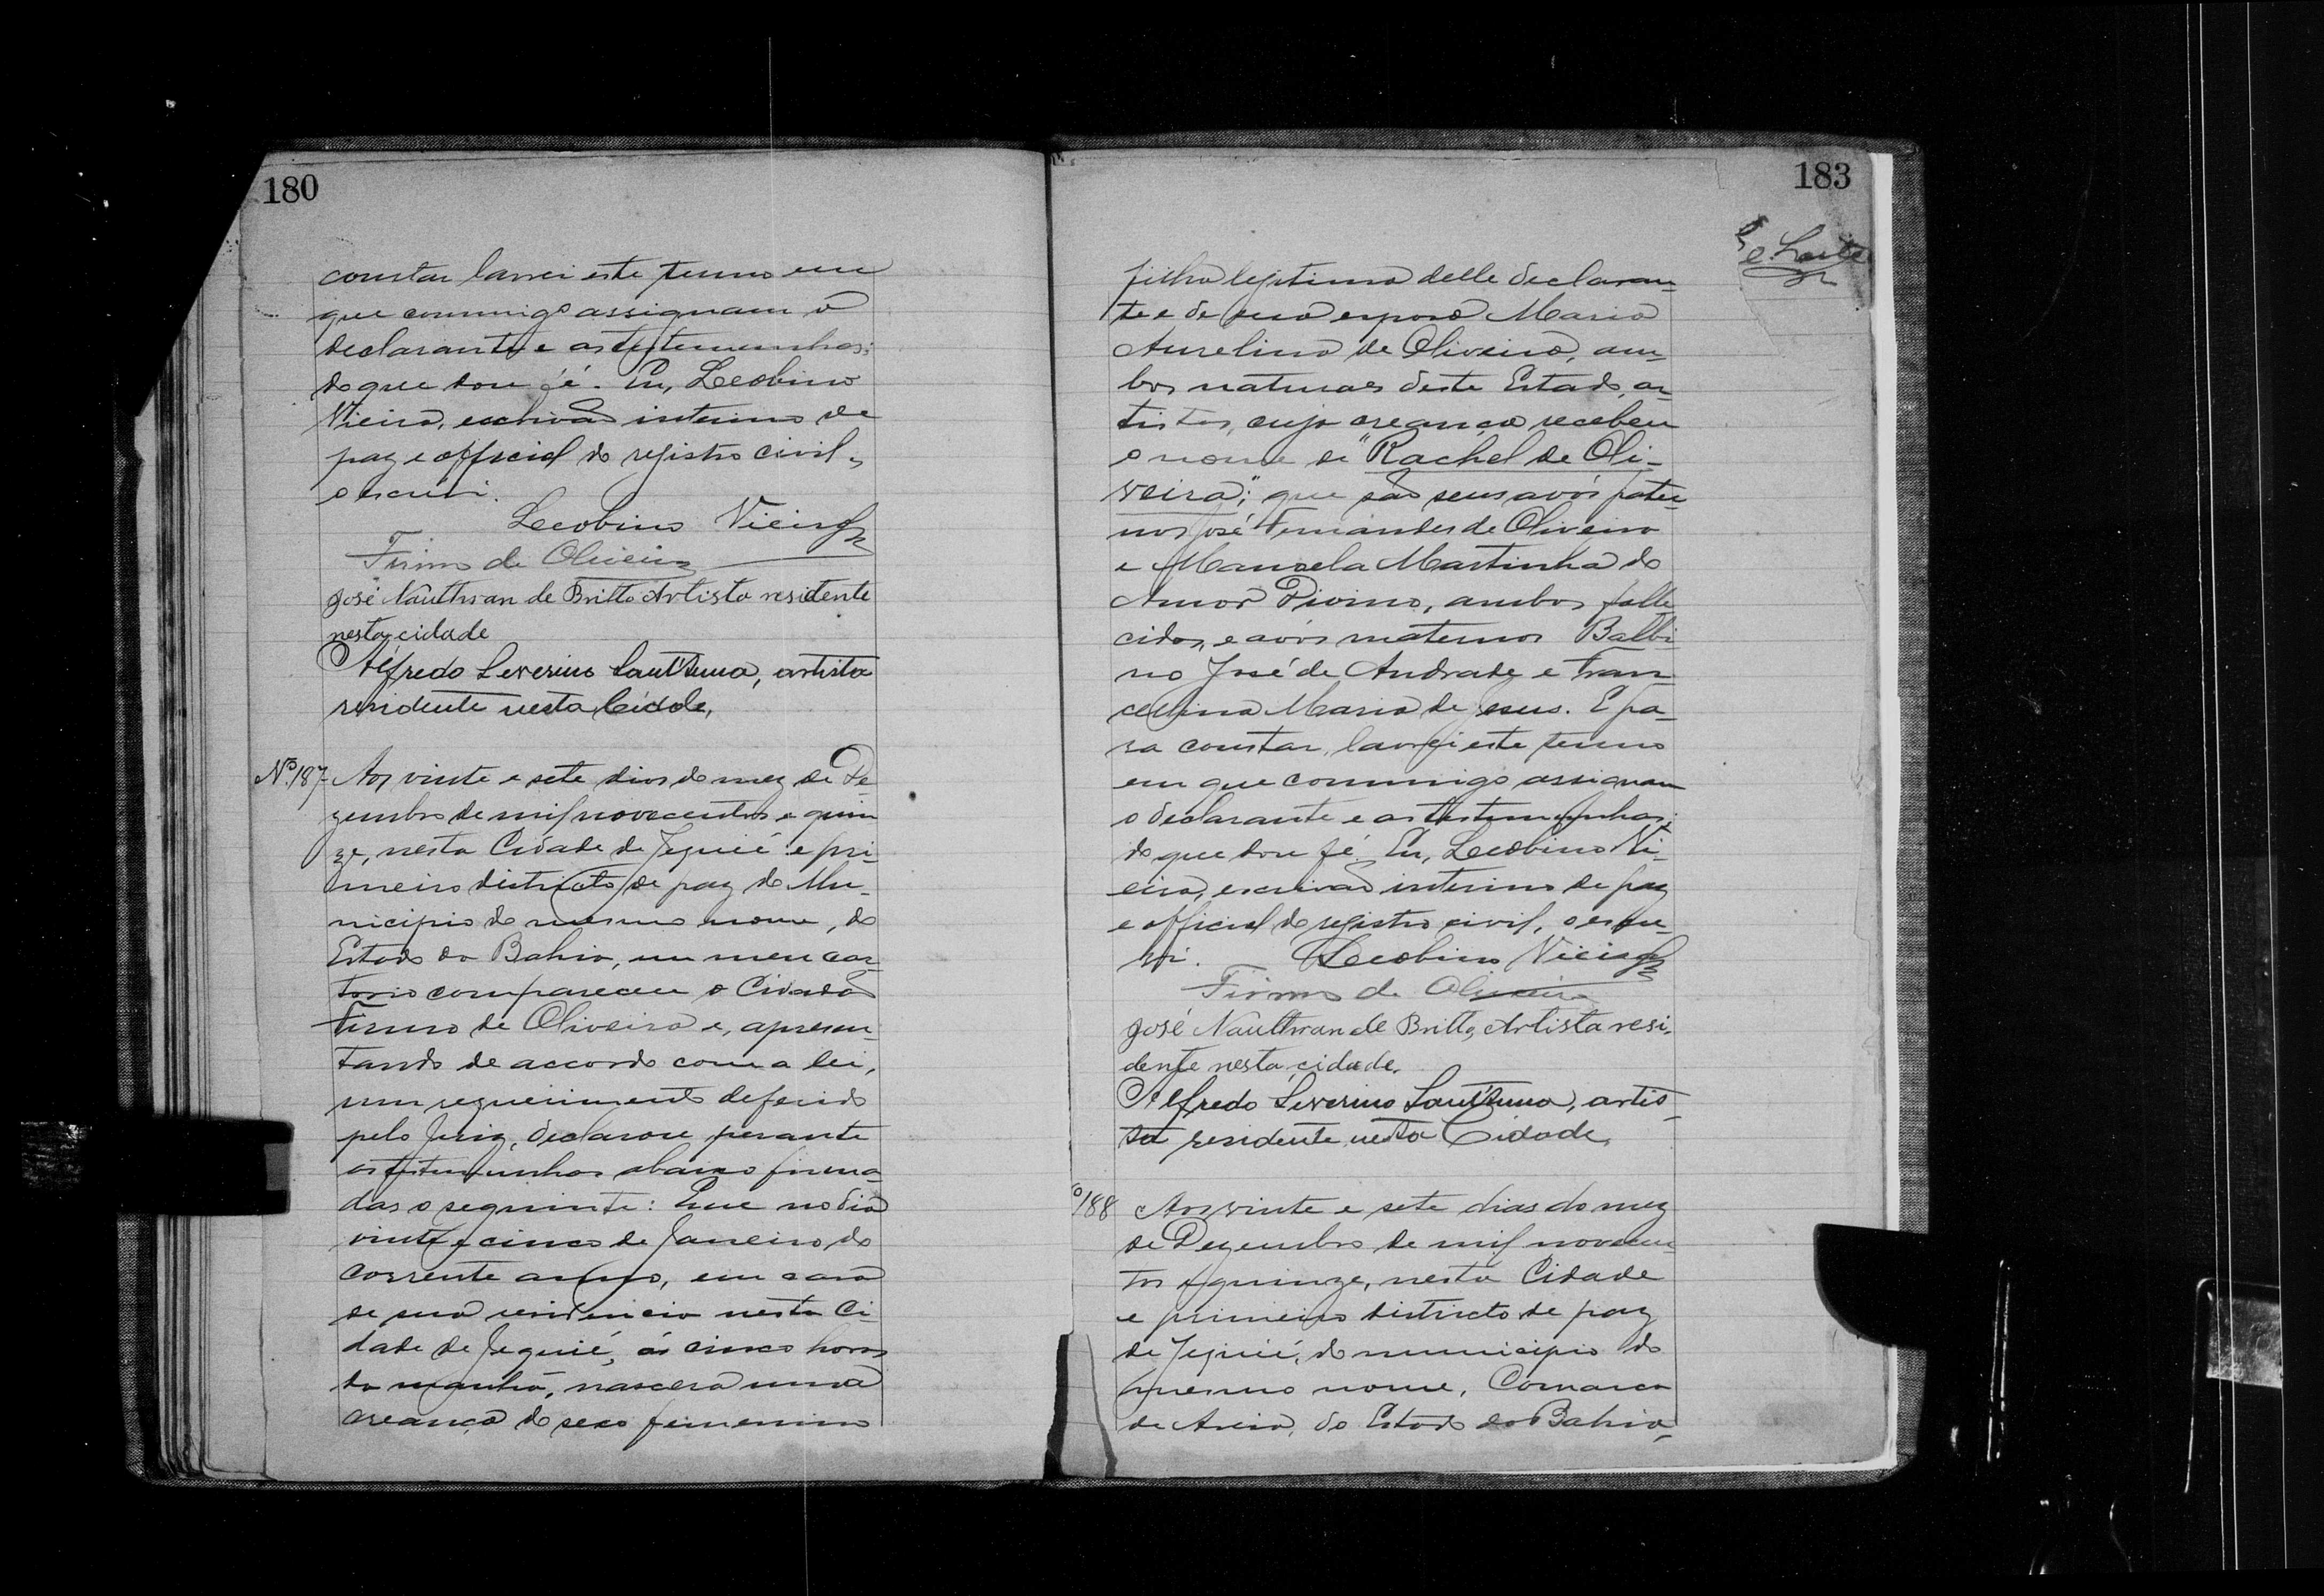 180
constar lavrei este termo em
que commigo assignam o
declarante e as testemunhas;
do que dou fé. Eu, Leobino
Vieira, escrivão interino de
paz e official do registro civil,
o escrevi.
Leobino Vieira
Firmo de Oliveira
José Nauthran de Britto Artista residente
nesta cidade
Alfredo Severino Sant'Anna, artista
residente nesta Cidade,
Nº 187 Aos vinte e sete dias do mez de De-
zembro de mil novecentos e quin
ze, nesta Cidade de Jequié e pri-
meiro districto de paz do Mu-
nicipio do mesmo nome, do
Estado da Bahia, em meu car-
torio compareceu o Cidadão
Firmo de Oliveira e, apresen-
tando de accordo com a lei,
um requerimento deferido
pelo Juiz, declarou perante
as testemunhas abaixo firma-
das o seguinte: Que no dia
vinte e cinco de Janeiro do
corrente anno, em casa
de sua residencia nesta Ci
dade de Jequié, ás cinco horas
da manhã, nascera uma
creança do sexo femenino
183
filha legitima delle declaran-
te e de sua esposa Maria
Aurelina de Oliveira, am-
bos naturaes deste Estado, ar-
tistas, cuja creança recebeu
o nome de "Rachel de Oli-
veira;" que são seus avós pater-
nos José Fernandes de Oliveira
e Manoela Martinha do
Amor Divino, ambos falle
cidos, e avós maternos Balbi
no José de Andrade e Fran-
cellina Maria de Jesus. E pa-
ra constar, lavrei este termo
em que commigo assignam
o declarante e as testemunhas;
do que dou fé. Eu, Leobino Vi-
eira, escrivão interino de paz
e official do registro civil, o escre-
vi. Leobino Vieira
Firmo de Oliveira
José Nauthran de Britto, Artista resi-
dente nesta cidade.
Alfredo Severino Sant'Anna, artis-
ta residente nesta Cidade,
º 188 Aos vinte e sete dias do mez
de Dezembro de mil novecen
tos e quinze, nesta Cidade
e primeiro districto de paz
de Jequié, do municipio do
mesmo nome, Comarca
de Areia, do Estado da Bahia,